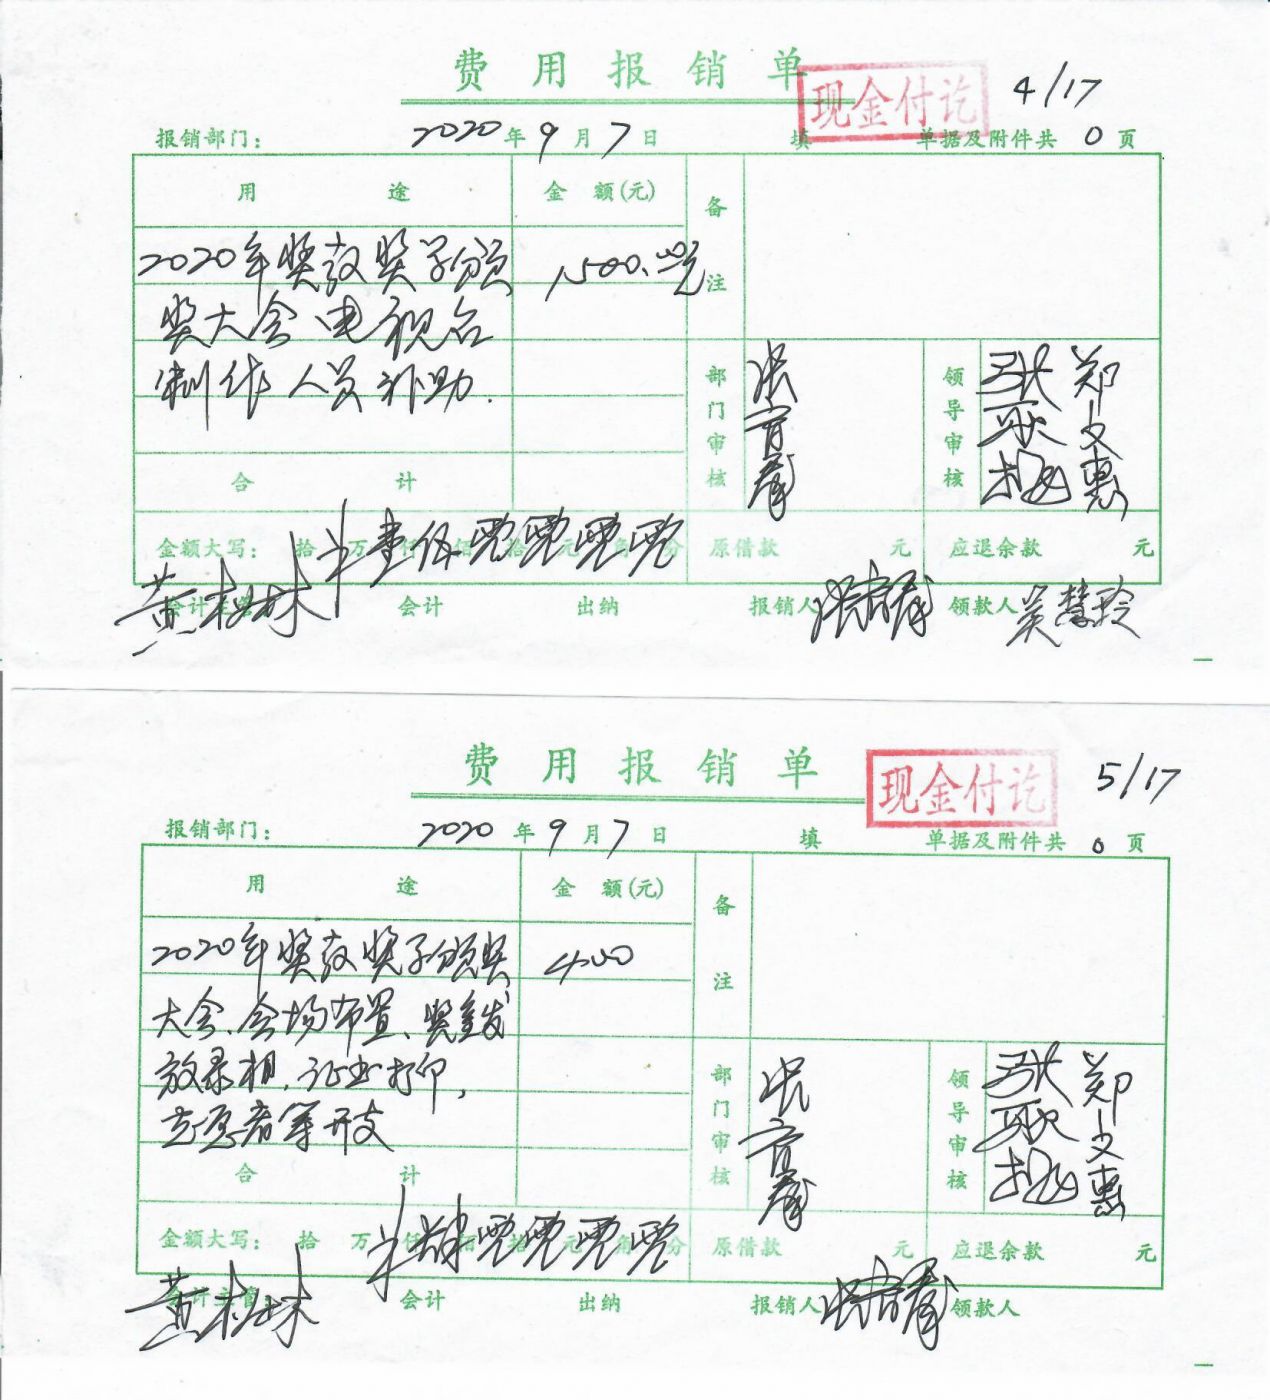 费用报销单
现金付讫
4/17
报销部门： 2020年9月7日 填 单据及附件共 0 页
用途 金额(元) 备注
2020年奖教奖学颁 1,500.00元
奖大会电视台
制作人员补助.
部门审核 领导审核 郑文惠
合计
金额大写： 拾 万 仟 伍 佰 零 拾 零 元 零 角 零 分 原借款 元 应退余款 元
会计主管 黄 林 会计 出纳 报销人 领款人 吴慧玲
费用报销单
现金付讫
5/17
报销部门： 2020年9月7日 填 单据及附件共 0 页
用途 金额(元) 备注
2020年奖教奖学颁奖 400
大会、会场布置、奖金发
放录相、证书打印,
志愿者等开支
部门审核 领导审核 郑文惠
合计
金额大写： 拾 万 仟 肆 佰 零 拾 零 元 零 角 零 分 原借款 元 应退余款 元
会计主管 黄 林 会计 出纳 报销人 领款人